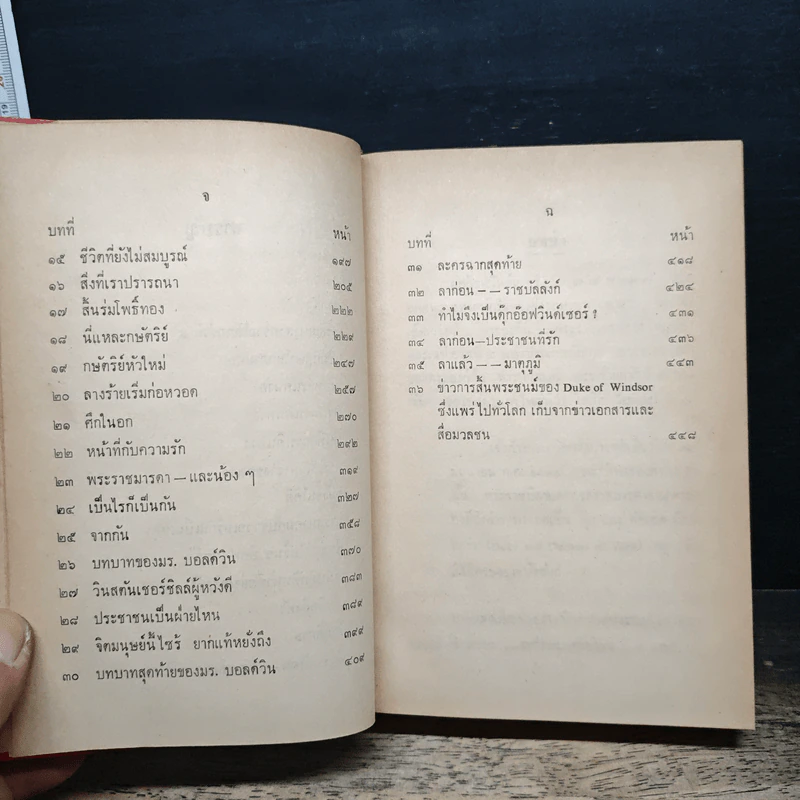 จ
บทที่ หน้า
๑๕ ชีวิตที่ยังไม่สมบูรณ์ ๑๙๗
๑๖ สิ่งที่เราปรารถนา ๒๐๕
๑๗ สิ้นร่มโพธิ์ทอง ๒๒๒
๑๘ นี่แหละกษัตริย์ ๒๒๙
๑๙ กษัตริย์หัวใหม่ ๒๔๗
๒๐ ลางร้ายเริ่มก่อหวอด ๒๕๗
๒๑ ศึกในอก ๒๗๐
๒๒ หน้าที่กับความรัก ๒๙๒
๒๓ พระราชมารดา — และน้อง ๆ ๓๑๙
๒๔ เป็นไรก็เป็นกัน ๓๒๗
๒๕ จากกัน ๓๕๘
๒๖ บทบาทของมร. บอลด์วิน ๓๗๐
๒๗ วินสตันเชอร์ชิลล์ผู้หวังดี ๓๘๓
๒๘ ประชาชนเป็นฝ่ายไหน ๓๘๙
๒๙ จิตมนุษย์นี้ไซร้ ยากแท้หยั่งถึง ๓๙๙
๓๐ บทบาทสุดท้ายของมร. บอลด์วิน ๔๐๙
ฉ
บทที่ หน้า
๓๑ ละครฉากสุดท้าย ๔๑๘
๓๒ ลาก่อน — — ราชบัลลังก์ ๔๒๔
๓๓ ทำไมจึงเป็นดุ๊กอ๊อฟวินด์เซอร์ ? ๔๓๑
๓๔ ลาก่อน—ประชาชนที่รัก ๔๓๖
๓๕ ลาแล้ว — — มาตุภูมิ ๔๔๓
๓๖ ข่าวการสิ้นพระชนม์ของ Duke of Windsor
ซึ่งแพร่ไปทั่วโลก เก็บจากข่าวเอกสารและ
สื่อมวลชน ๔๔๘